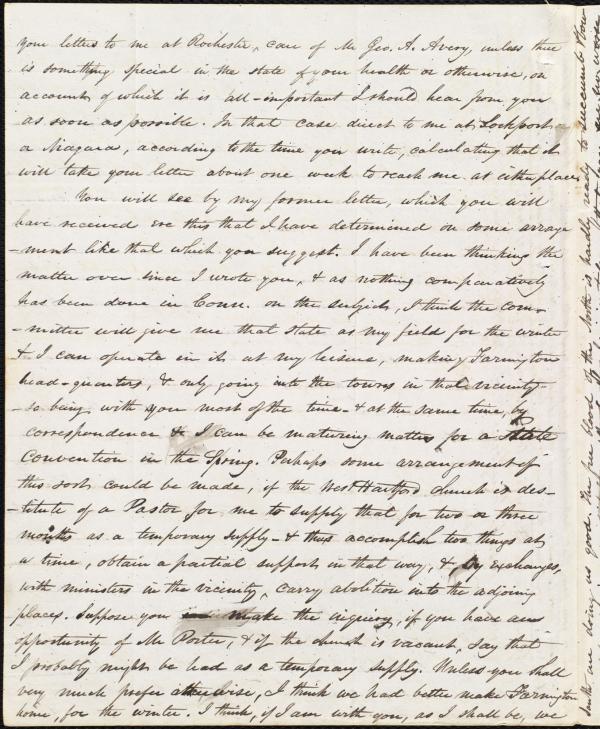 your letters to me at Rochester, care of Mr Geo. A. Avery, unless there
is something special in the state of your health or otherwise, on
account of which it is all-important I should hear from you
as soon as possible. In that case direct to me at Lockport, or
a Niagara, according to the time you write, calculating that it
will take your letter about one week to reach me at either place.
You will see by my former letter, which you will
have received ere this that I have determined on some arrange
-ment like that which you suggest. I have been thinking the
matter over since I wrote you, & as nothing comparatively
has been done in Conn. on the subject, I think the com-
-mittee will give me that state as my field for the winter
& I can operate in it at my leisure, making Farmington
head-quarters, & only going into the towns in that vicinity
-so being with you most of the time- & at the same time, by
correspondence & I can be maturing matters for a State
Convention in the Spring. Perhaps some arrangement of
this sort could be made, if the West Hartford church is des-
-titute of a Pastor for me to supply that for two or three
months as a temporary supply- & thus accomplish two things at
a time, obtain a partial support in that way, & by exchanges,
with ministers in the vicinity, carry abolition into the adjoing
places. Suppose you make the inquiry, if you have an
opportunity of Mr Porter, & if the church is vacant, say that
I probably might be had as a temporary supply. Unless you shall
very much prefer otherwise, I think we had better make Farmington
home, for the winter. I think, if I am with you, as I shall be, we
South are doing us good. The free blood of the North is hardly ready to succumb